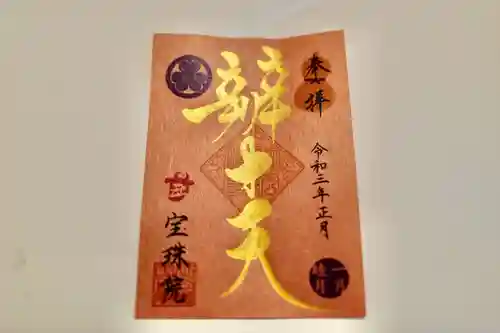 奉拝
令和三年正月
辨才天
宝珠院